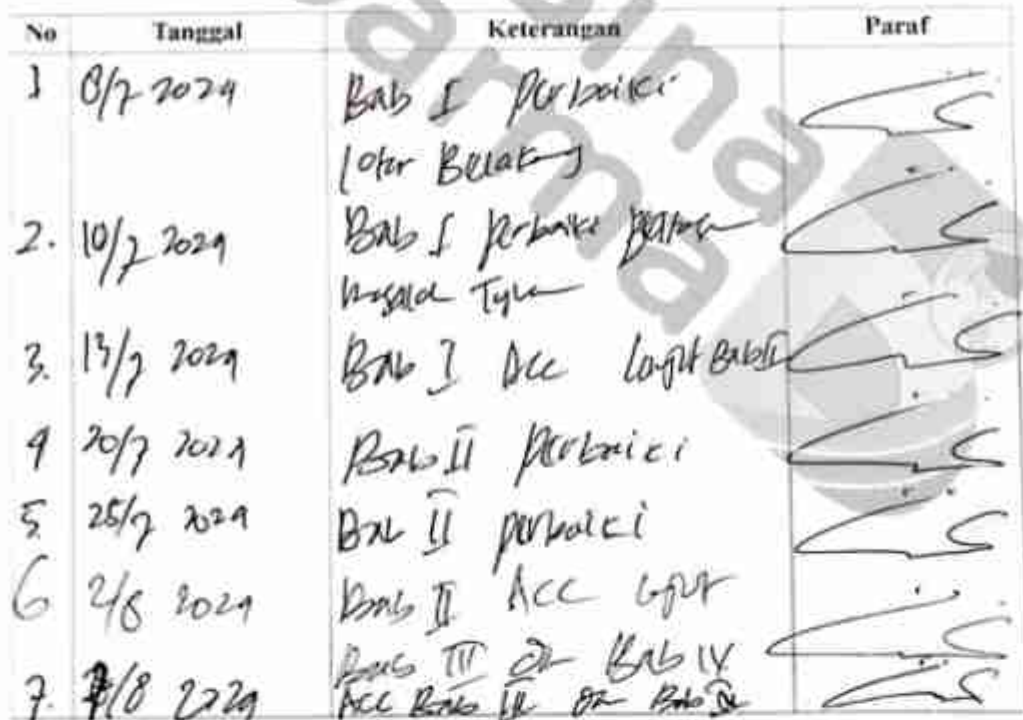 No Tanggal Keterangan Paraf
1 8/7 2024 Bab I perbaiki
Latar Belakang
2. 10/7 2024 Bab I perbaiki
masalah
3. 13/7 2024 Bab I Acc lanjut Bab II
4 20/7 2024 Bab II perbaiki
5. 25/7 2024 Bab II perbaiki
6 2/8 2024 Bab II Acc lanjut
Bab III dan Bab IV
7. 7/8 2024 Acc Bab III dan Bab IV